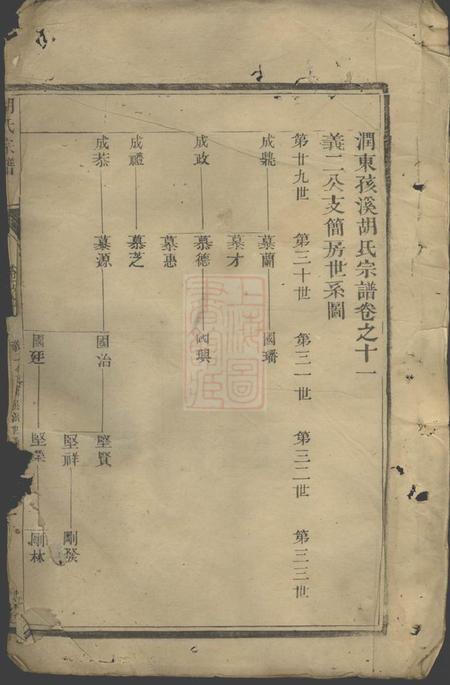 潤東孩溪胡氏宗譜卷之十一
義二公支簡房世系圖
第廿九世 第三十世 第三一世 第三二世 第三三世
慕蘭 國璠
慕才
成政 慕德 國興
慕惠
成禮 慕芝
成恭 慕源 國治 堅賢
堅祥 剛發
國廷 堅業 剛林
氏宗譜
上海圖書館藏